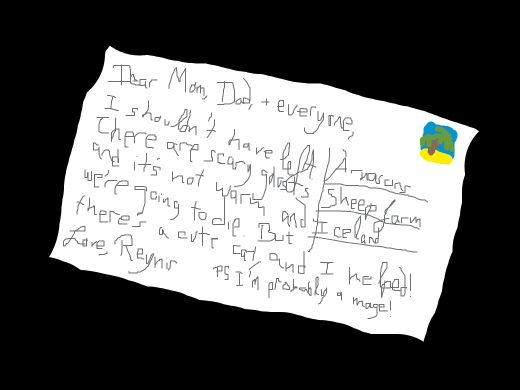 Dear Mom, Dad, + everyone,
I shouldn't have left
There are scary ghosts
and it's not warm and
we're going to die. But
there's a cute cat and I helped!
Love, Reynir
PS I'm probably a mage!
Arnasons
Sheep farm
Iceland